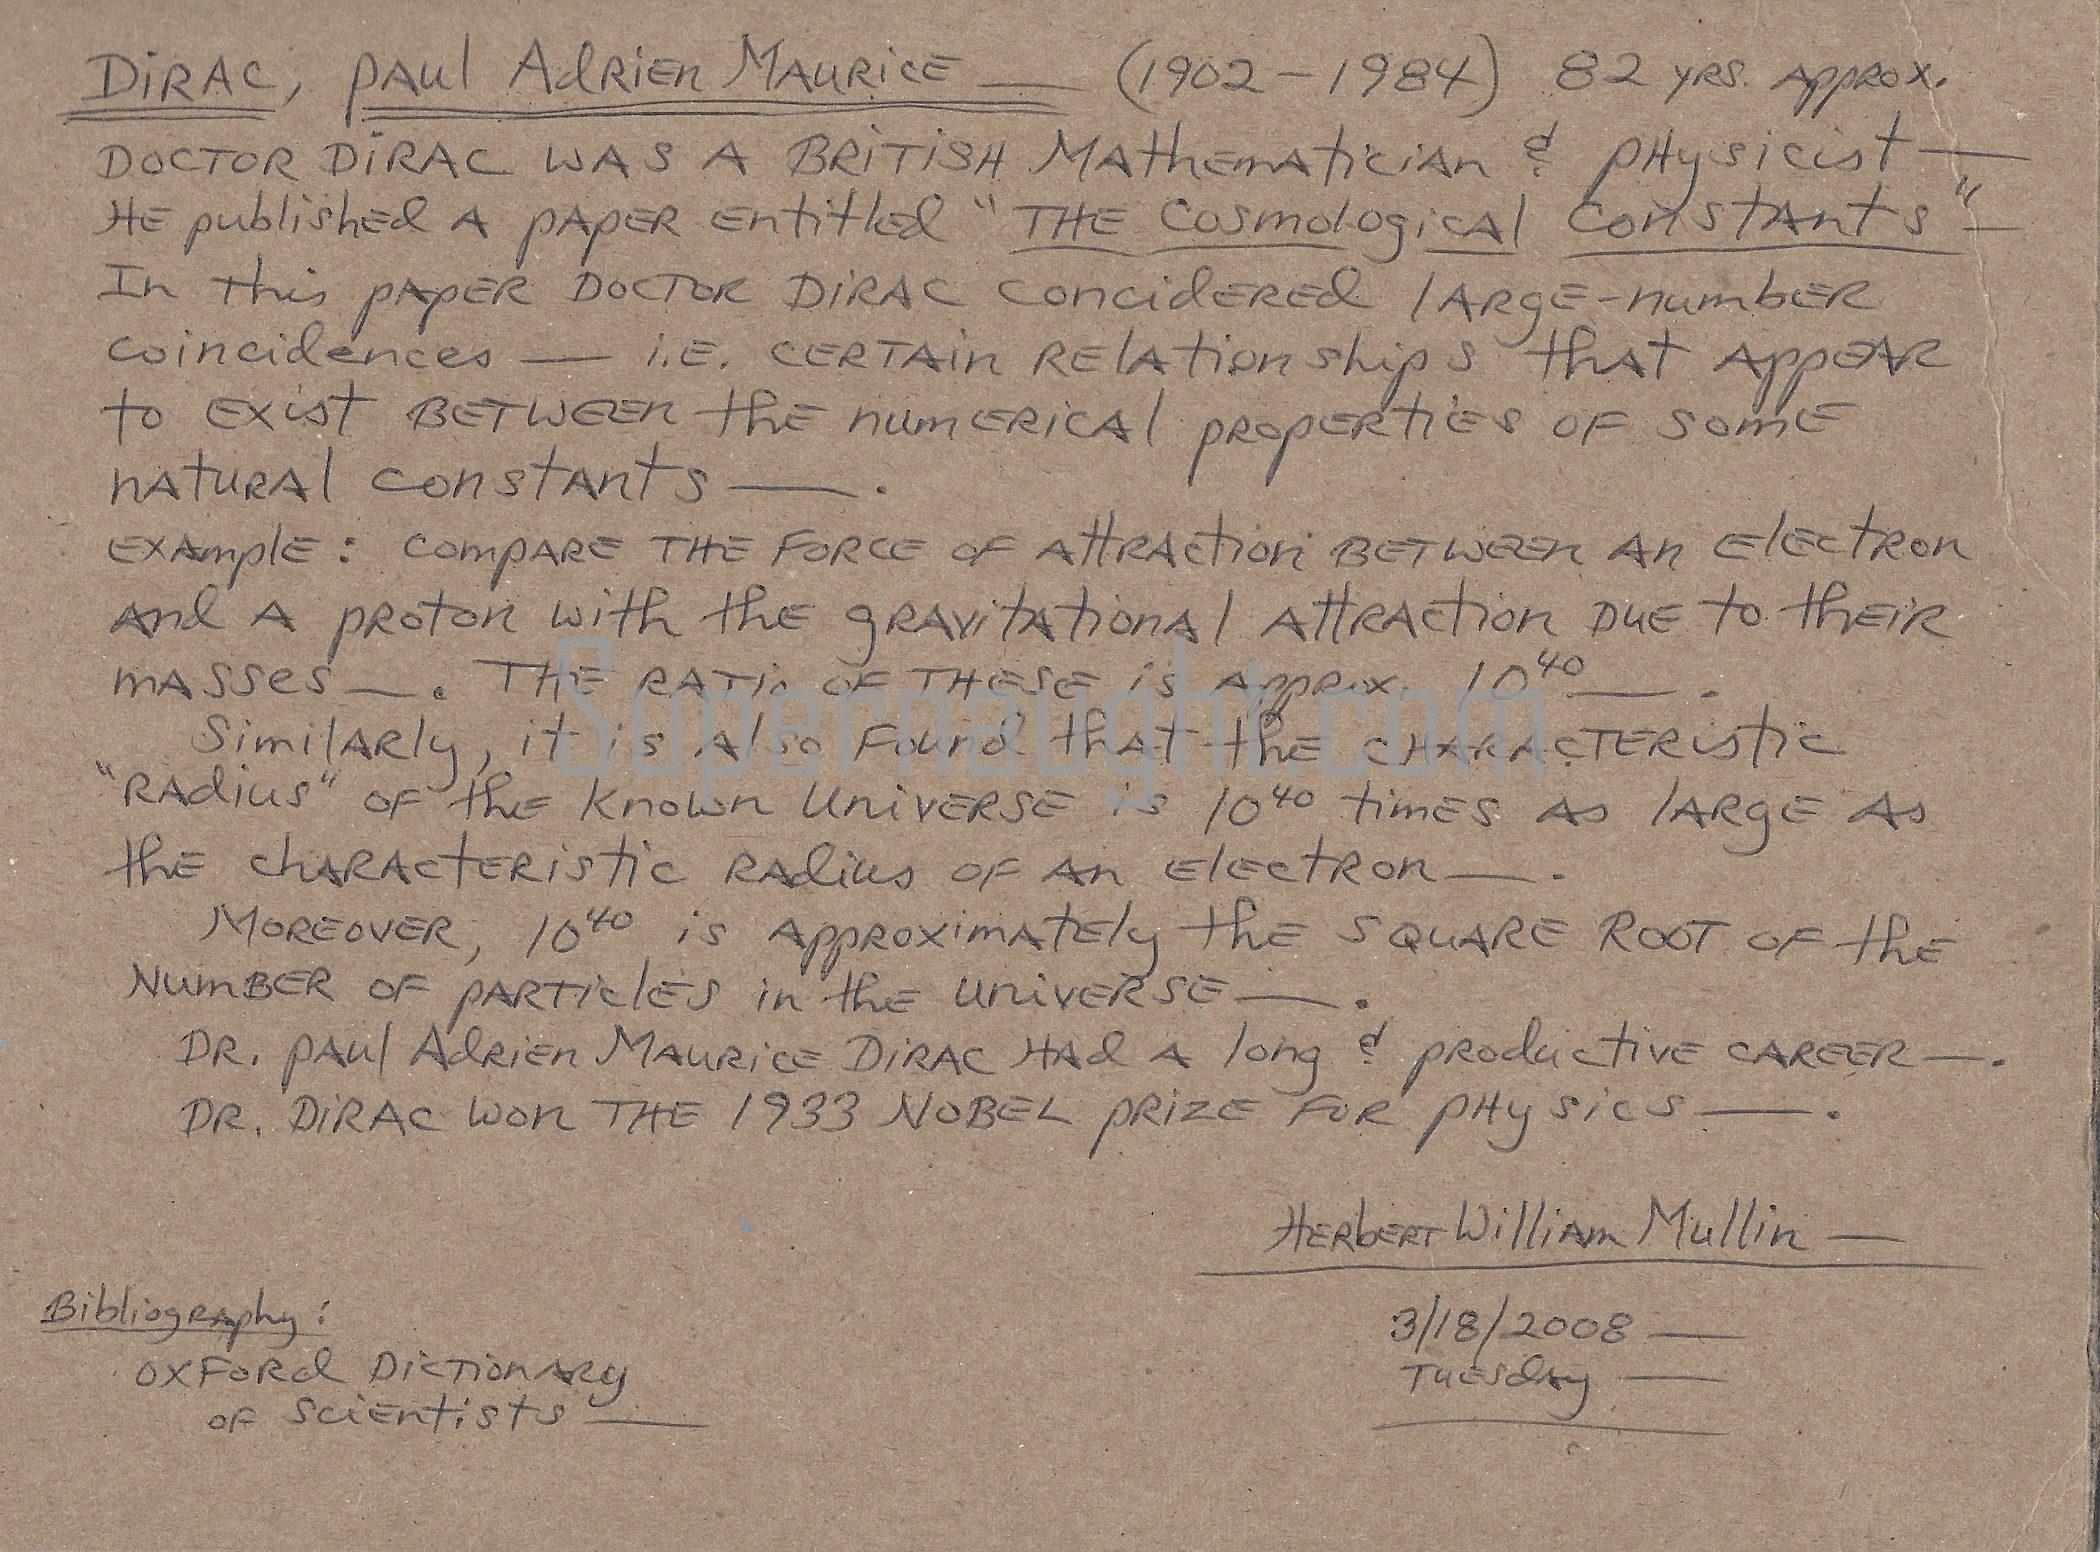 DiRAC, PAUL AdRiEn MAURiCE — (1902 – 1984) 82 yrs. Approx.
DOCTOR DiRAC WAS A BRiTiSH MAthEmAticiAn & PHysicist —
HE published A PAPER Entitled "THE Cosmological Constants" —
In this PAPER DOCTOR DiRAC concidERED lARgE-numbER
coincidences — i.E. CERTAin RElationships that AppEAR
to Exist BETWEEN the numERiCAl pROpERtiEs OF somE
nAtURAl constAnts — .
EXAmplE: compARE THE FORCE OF AttRAction BETWEEN An ElEctRon
And A pROton with the gRAvitAtionAl AttRAction DUE to thEiR
mASSes — . THE RATio OF THESE is AppRox. 10⁴⁰ — .
SimilARly, it is Also Found thAt the CHARACTERistic
"RAdius" OF the Known UnivERSE is 10⁴⁰ timES As lARgE As
the chARActERistic RAdius OF An ElEctRon — .
MOREOVER, 10⁴⁰ is AppROximAtEly the SQUARE ROOT OF the
NumBER OF pARTiclES in the UnivERSE — .
DR. PAUl AdRiEn MAURiCE DiRAC HAd A long & pRoductivE CAREER — .
DR. DiRAC WOn THE 1933 NOBEL PRiZE FOR PHysics — .
HERbERT WilliAm Mullin —
3/18/2008 —
TuEsdAy —
BibliogRAphy:
OXFORd DictionARy
OF SciEntists —
Supernaught.com